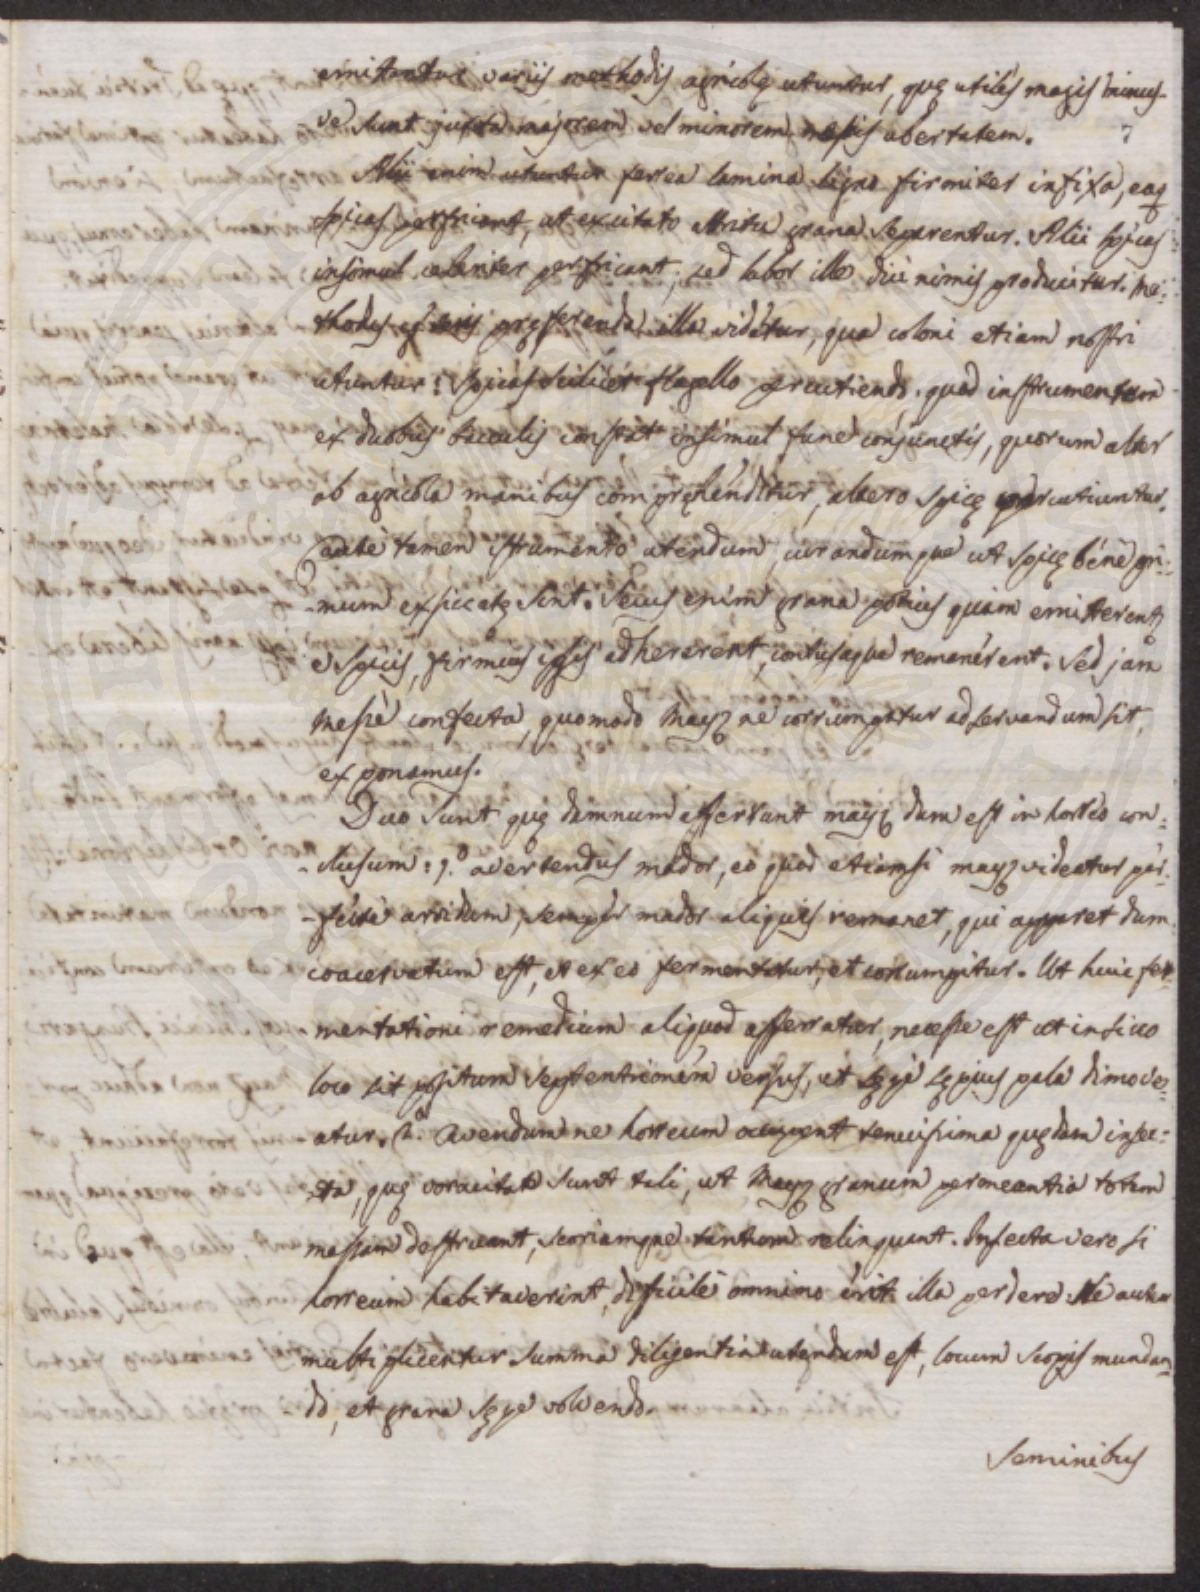 emitantur variis methodis agricolę utuntur, quę utiles magis minus-
ve sunt juxta majorem vel minorem messis ubertatem. 7
Alii enim utuntur ferrea lamina ligno firmiter infixa, eaq
spicas perfricant, ut excitato attritu grana separentur. Alii spicas
insimul celeriter perfricant; sed labor ille diu nimis producitur. Me-
thodus præferenda illa videtur, qua coloni etiam nostri
utuntur: spicas scilicet flagello percutiendo. quod instrumentum
ex duobus baculis constat insimul fune conjunctis, quorum alter
ab agricola manibus compręhenditur, altero spicę percutiuntur.
Caute tamen istrumento utendum, curandumque ut spicę bene pri-
-mum exsiccatę sint. Secus enim grana potius quam emitterent
e spicis, firmius ipsis adhererent, contusaque remanerent. Sed jam
messe confecta, quomodo Mayz ne corrumpatur adservandum sit,
exponamus.
Duo sunt quę damnum afferunt mayz dum est in horreo con-
-clusum: 1.º avertendus mador, eo quod etiamsi mayz videatur per-
-fecte arridum, semper mador aliquis remanet, qui apparet dum
coacervatum est, et ex eo fermentatur, et corrumpitur. Ut huic fer-
mentationi remedium aliquod afferratur, necesse est ut in sicco
loco sit positum septentrionem versus, et sępe sępius pala dimove-
atur. 2.º Cavendum ne horreum occupent tenuissima quędam insec-
-ta, quę voracitate sunt tali, ut Mayz granum permeantia totam
massam destruant, scoriamque tantum relinquant. Insecta vero si
horreum habitaverint, dificile omnino erit illa perdere. Ne autem
multiplicentur summa diligentia utendum est, locum scopis mundan-
-do, et grana sępe volvendo.
Seminibus